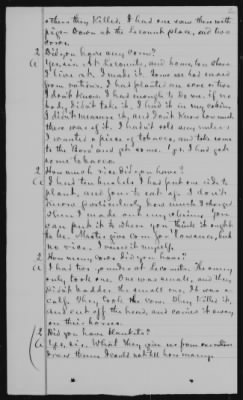 others they killed. I had one sow there with
pigs down at the Lecount place, and two
Q Did you have any corn?
A Yes, sir. At Lecounts, and home, too where
I live at. I made it. Some we had saved
from rations. I had planted an acre or two.
I don't know I had enough to do me if no-
body didn't take it. I had it in my cabin.
I didn't measure it, and don't know how much
there was of it. I had sold my rule.
I wanted a piece of tobacco, and take some
to the Boro' and get some. Yes, I had got
some tobacco.
Q How much rice did you have?
A I had ten bushels. I had put one side to
plant, and one to eat up. I don't
know particularly how much I charged
when I made out my claim. You
can put it to where you think it ought
to be. Master gives corn for 'lowance, but
no rice. I raised it myself.
Q How many cows did you have?
A I had two yonder at Lecounts. The army
only took one. One was small, and they
didn't bother the small one. It was a
calf. They took the cow. They killed it,
and cut off the head, and carried it away
on their horses.
Q Did you have blankets?
A Yes, sir. What they give us from
I drew them. I could not tell how many.